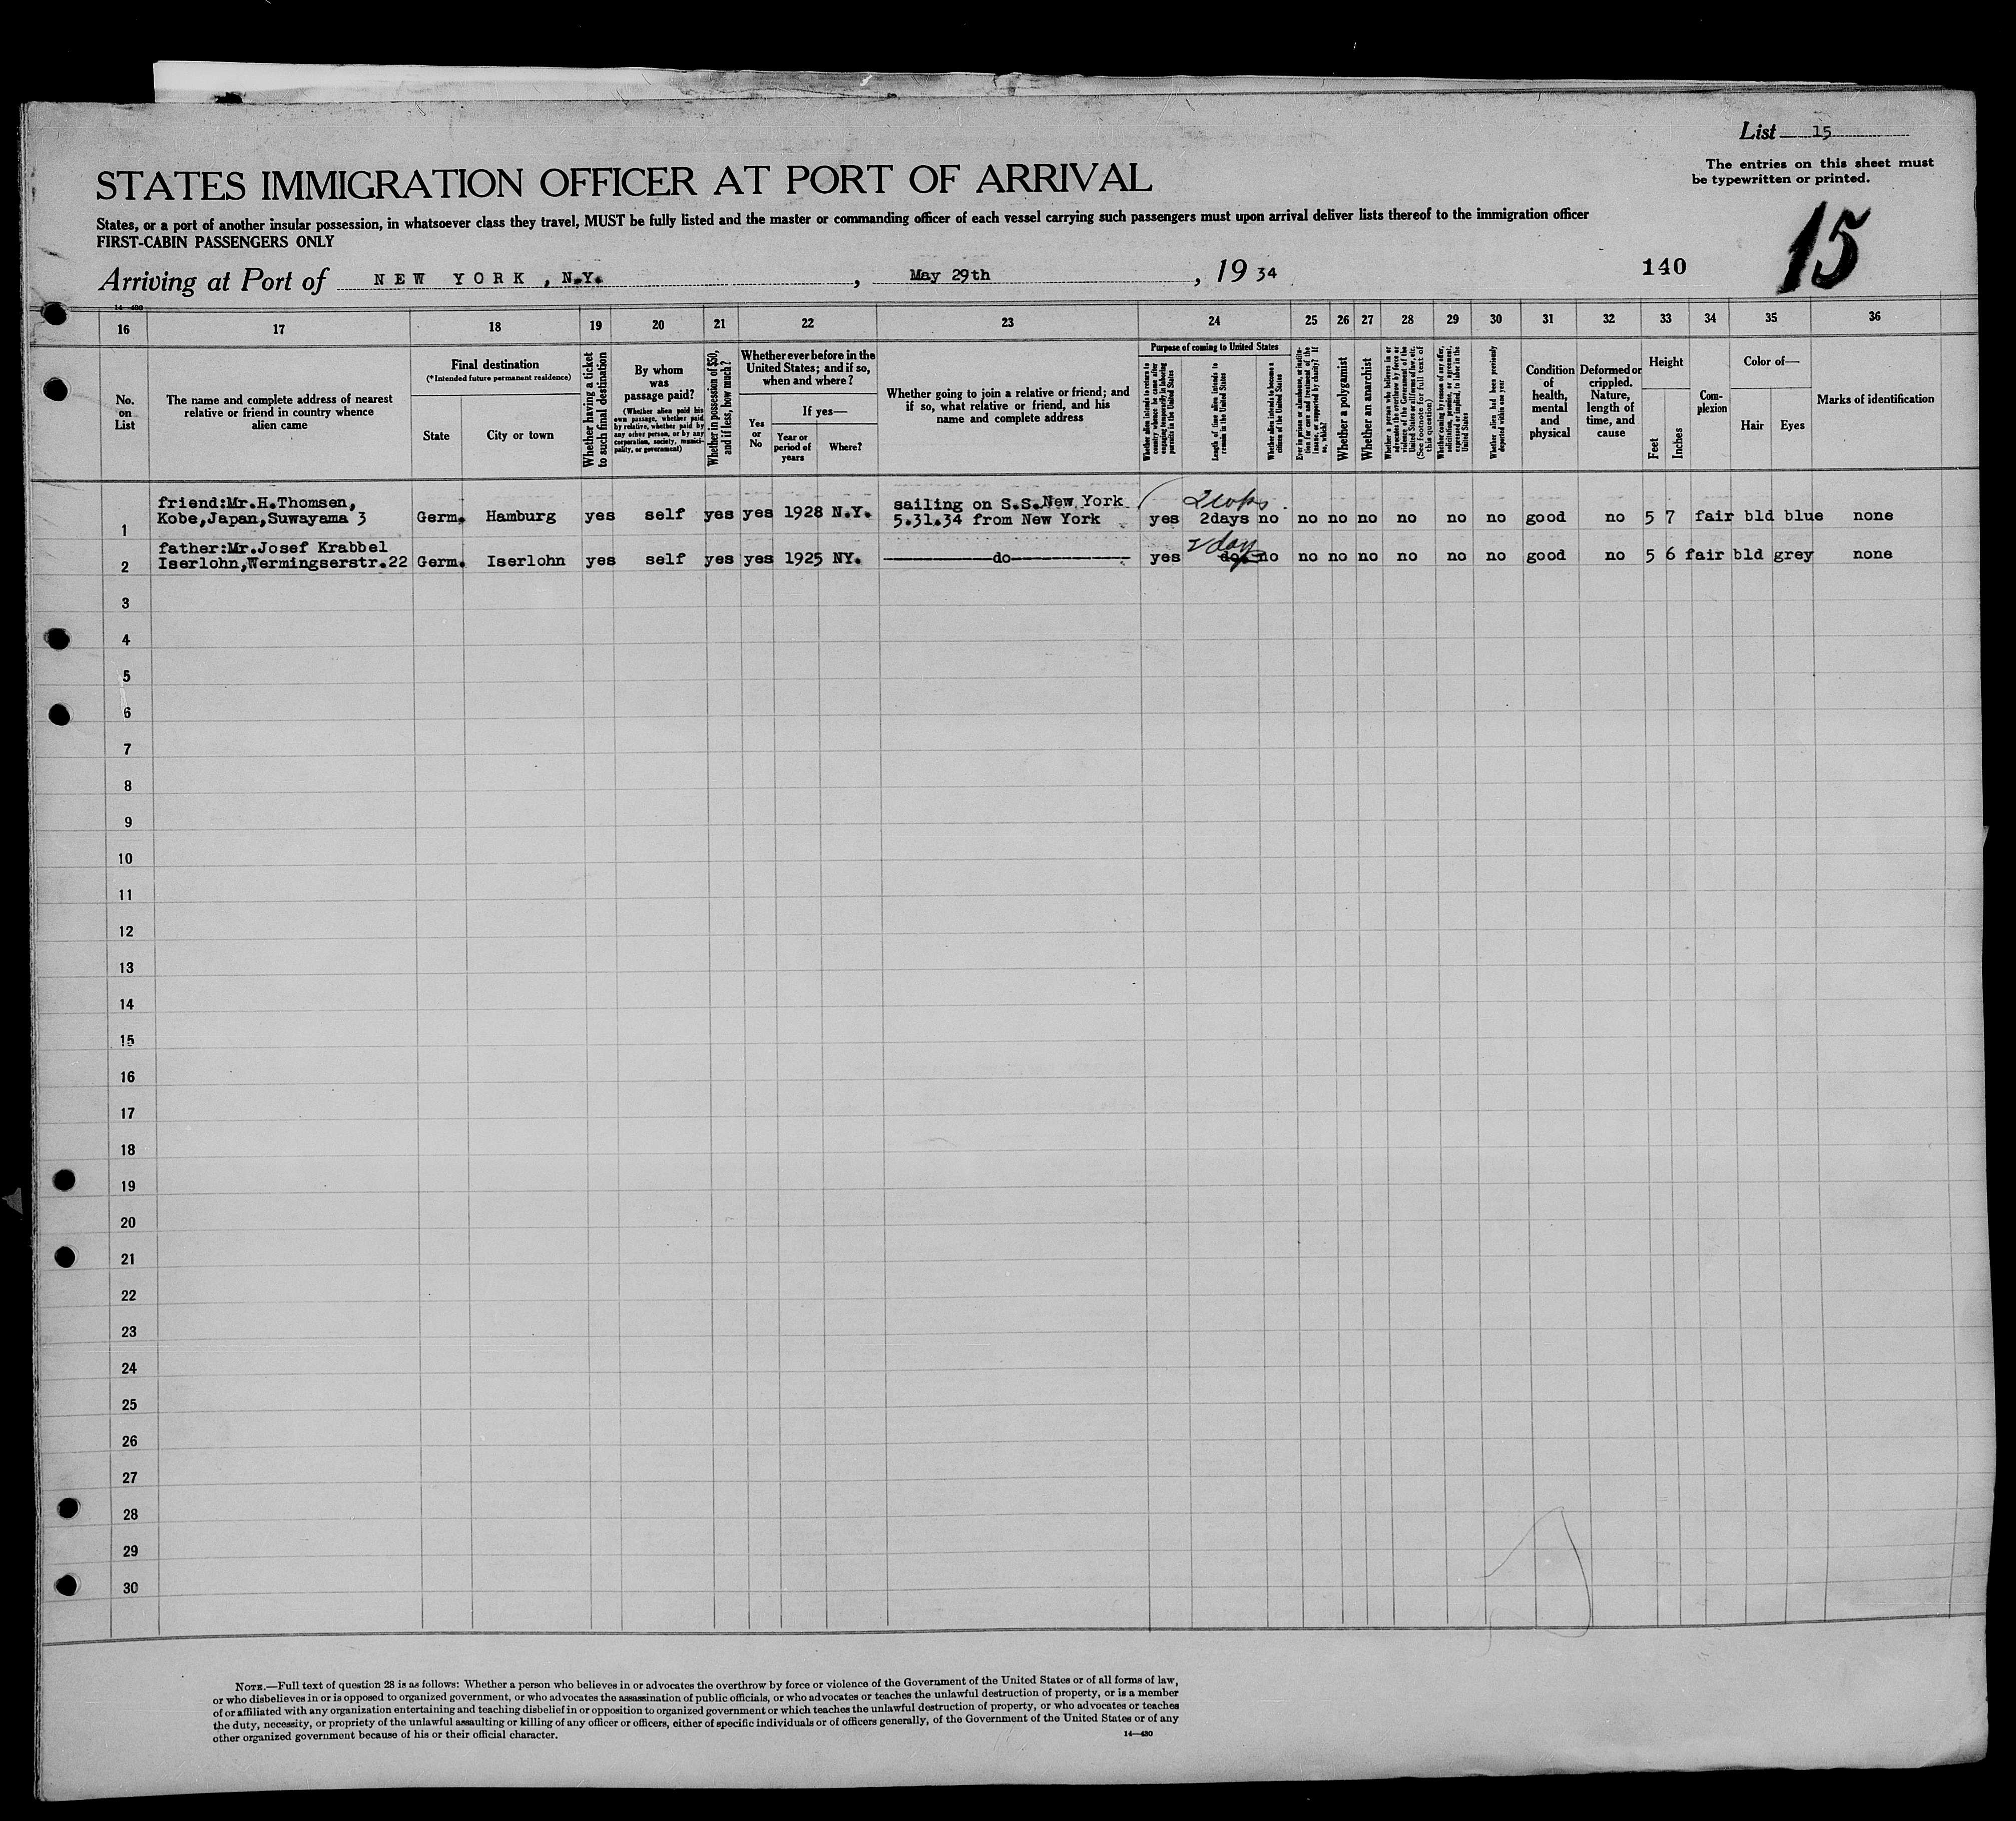 List 15
The entries on this sheet must
be typewritten or printed.
STATES IMMIGRATION OFFICER AT PORT OF ARRIVAL
States, or a port of another insular possession, in whatsoever class they travel, MUST be fully listed and the master or commanding officer of each vessel carrying such passengers must upon arrival deliver lists thereof to the immigration officer
FIRST-CABIN PASSENGERS ONLY
15
Arriving at Port of NEW YORK, N.Y. , May 29th , 19 34
140
14—430
16 17 18 19 20 21 22 23 24 25 26 27 28 29 30 31 32 33 34 35 36
No.
on
List
The name and complete address of nearest
relative or friend in country whence
alien came
Final destination
(*Intended future permanent residence)
State
City or town
Whether having a ticket
to such final destination
By whom
was
passage paid?
(Whether alien paid his
own passage, whether paid
by relative, whether paid by
any other person, or by any
corporation, society, munici-
pality, or government)
Whether in possession of $50,
and if less, how much?
Whether ever before in the
United States; and if so,
when and where?
Yes
or
No
If yes—
Year or
period of
years
Where?
Whether going to join a relative or friend; and
if so, what relative or friend, and his
name and complete address
Purpose of coming to United States
Whether alien intends to return to
country whence he came after
engaging temporarily in laboring
pursuits in the United States
Length of time alien intends to
remain in the United States
Whether alien intends to become a
citizen of the United States
Ever in prison or almshouse, or institu-
tion for care and treatment of the
insane, or supported by charity? If
so, which?
Whether a polygamist
Whether an anarchist
Whether a person who believes in or
advocates the overthrow by force or
violence of the Government of the
United States or all forms of law, etc.
(See footnote for full text of
this question)
Whether coming by reason of any offer,
solicitation, promise, or agreement,
expressed or implied, to labor in the
United States
Whether alien had been previously
deported within one year
Condition
of
health,
mental
and
physical
Deformed or
crippled.
Nature,
length of
time, and
cause
Height
Feet
Inches
Com-
plexion
Color of—
Hair
Eyes
Marks of identification
friend:Mr.H.Thomsen, sailing on S.S.New York
1 Kobe,Japan,Suwayama 3 Germ. Hamburg yes self yes yes 1928 N.Y. 5.31.34 from New York yes 2days no no no no no no no good no 5 7 fair bld blue none
father:Mr.Josef Krabbel 2 day
2 Iserlohn,Wermingserstr.22 Germ. Iserlohn yes self yes yes 1925 NY. do yes do no no no no no no no good no 5 6 fair bld grey none
3
4
5
6
7
8
9
10
11
12
13
14
15
16
17
18
19
20
21
22
23
24
25
26
27
28
29
30
NOTE.—Full text of question 28 is as follows: Whether a person who believes in or advocates the overthrow by force or violence of the Government of the United States or of all forms of law,
or who disbelieves in or is opposed to organized government, or who advocates the assassination of public officials, or who advocates or teaches the unlawful destruction of property, or is a member
of or affiliated with any organization entertaining and teaching disbelief in or opposition to organized government or which teaches the unlawful destruction of property, or who advocates or teaches
the duty, necessity, or propriety of the unlawful assaulting or killing of any officer or officers, either of specific individuals or of officers generally, of the Government of the United States or of any
other organized government because of his or their official character.
14—430